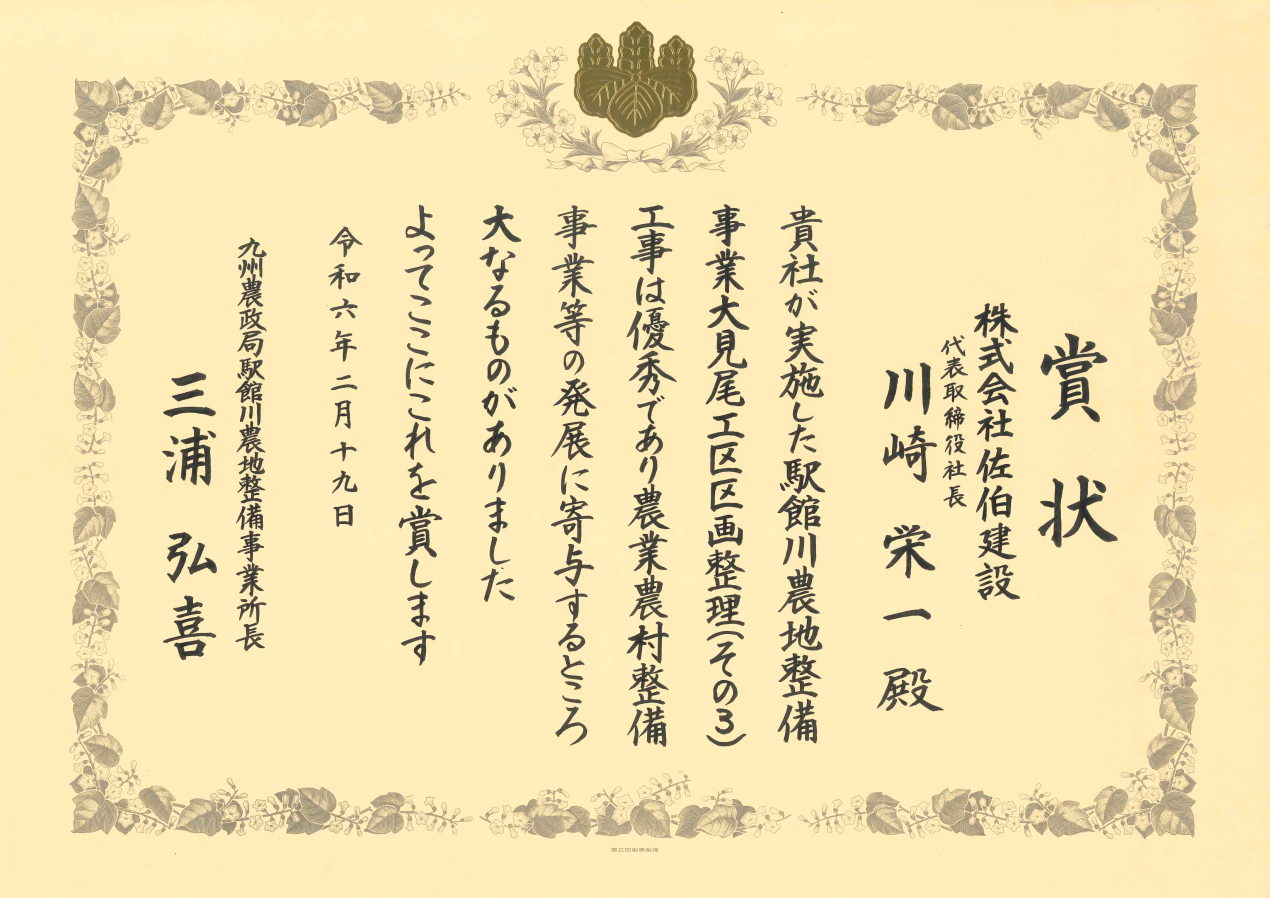 賞状
株式会社佐伯建設
代表取締役社長
川崎栄一殿
貴社が実施した駅館川農地整備
事業大見尾工区区画整理(その3)
工事は優秀であり農業農村整備
事業等の発展に寄与するところ
大なるものがありました
よってここにこれを賞します
令和六年二月十九日
九州農政局駅館川農地整備事業所長
三浦弘喜